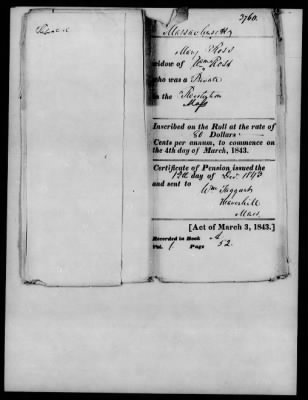 3760.
Massachusetts
Mary Ross
widow of Wm Ross
who was a Private
in the Revolution
Mass
Inscribed on the Roll at the rate of
80 Dollars
Cents per annum, to commence on
the 4th day of March, 1843.
Certificate of Pension issued the
day of 1843
and sent to
Wm Taggart
Haverhill
Mass.
[Act of March 3, 1843.]
Recorded in Book A
Vol. 1 Page 52.